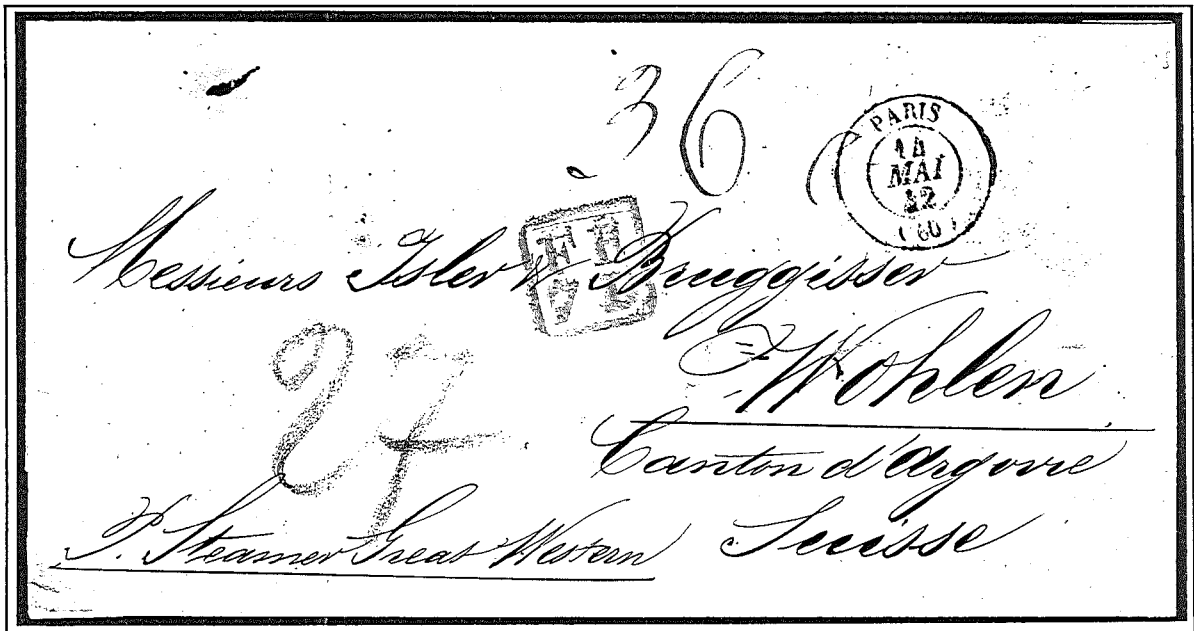 36
PARIS
14
MAI
42
(60)
Messieurs Isler & Bruggisser
Wohlen
27
Canton d'Argovie
Suisse
P. Steamer Great Western